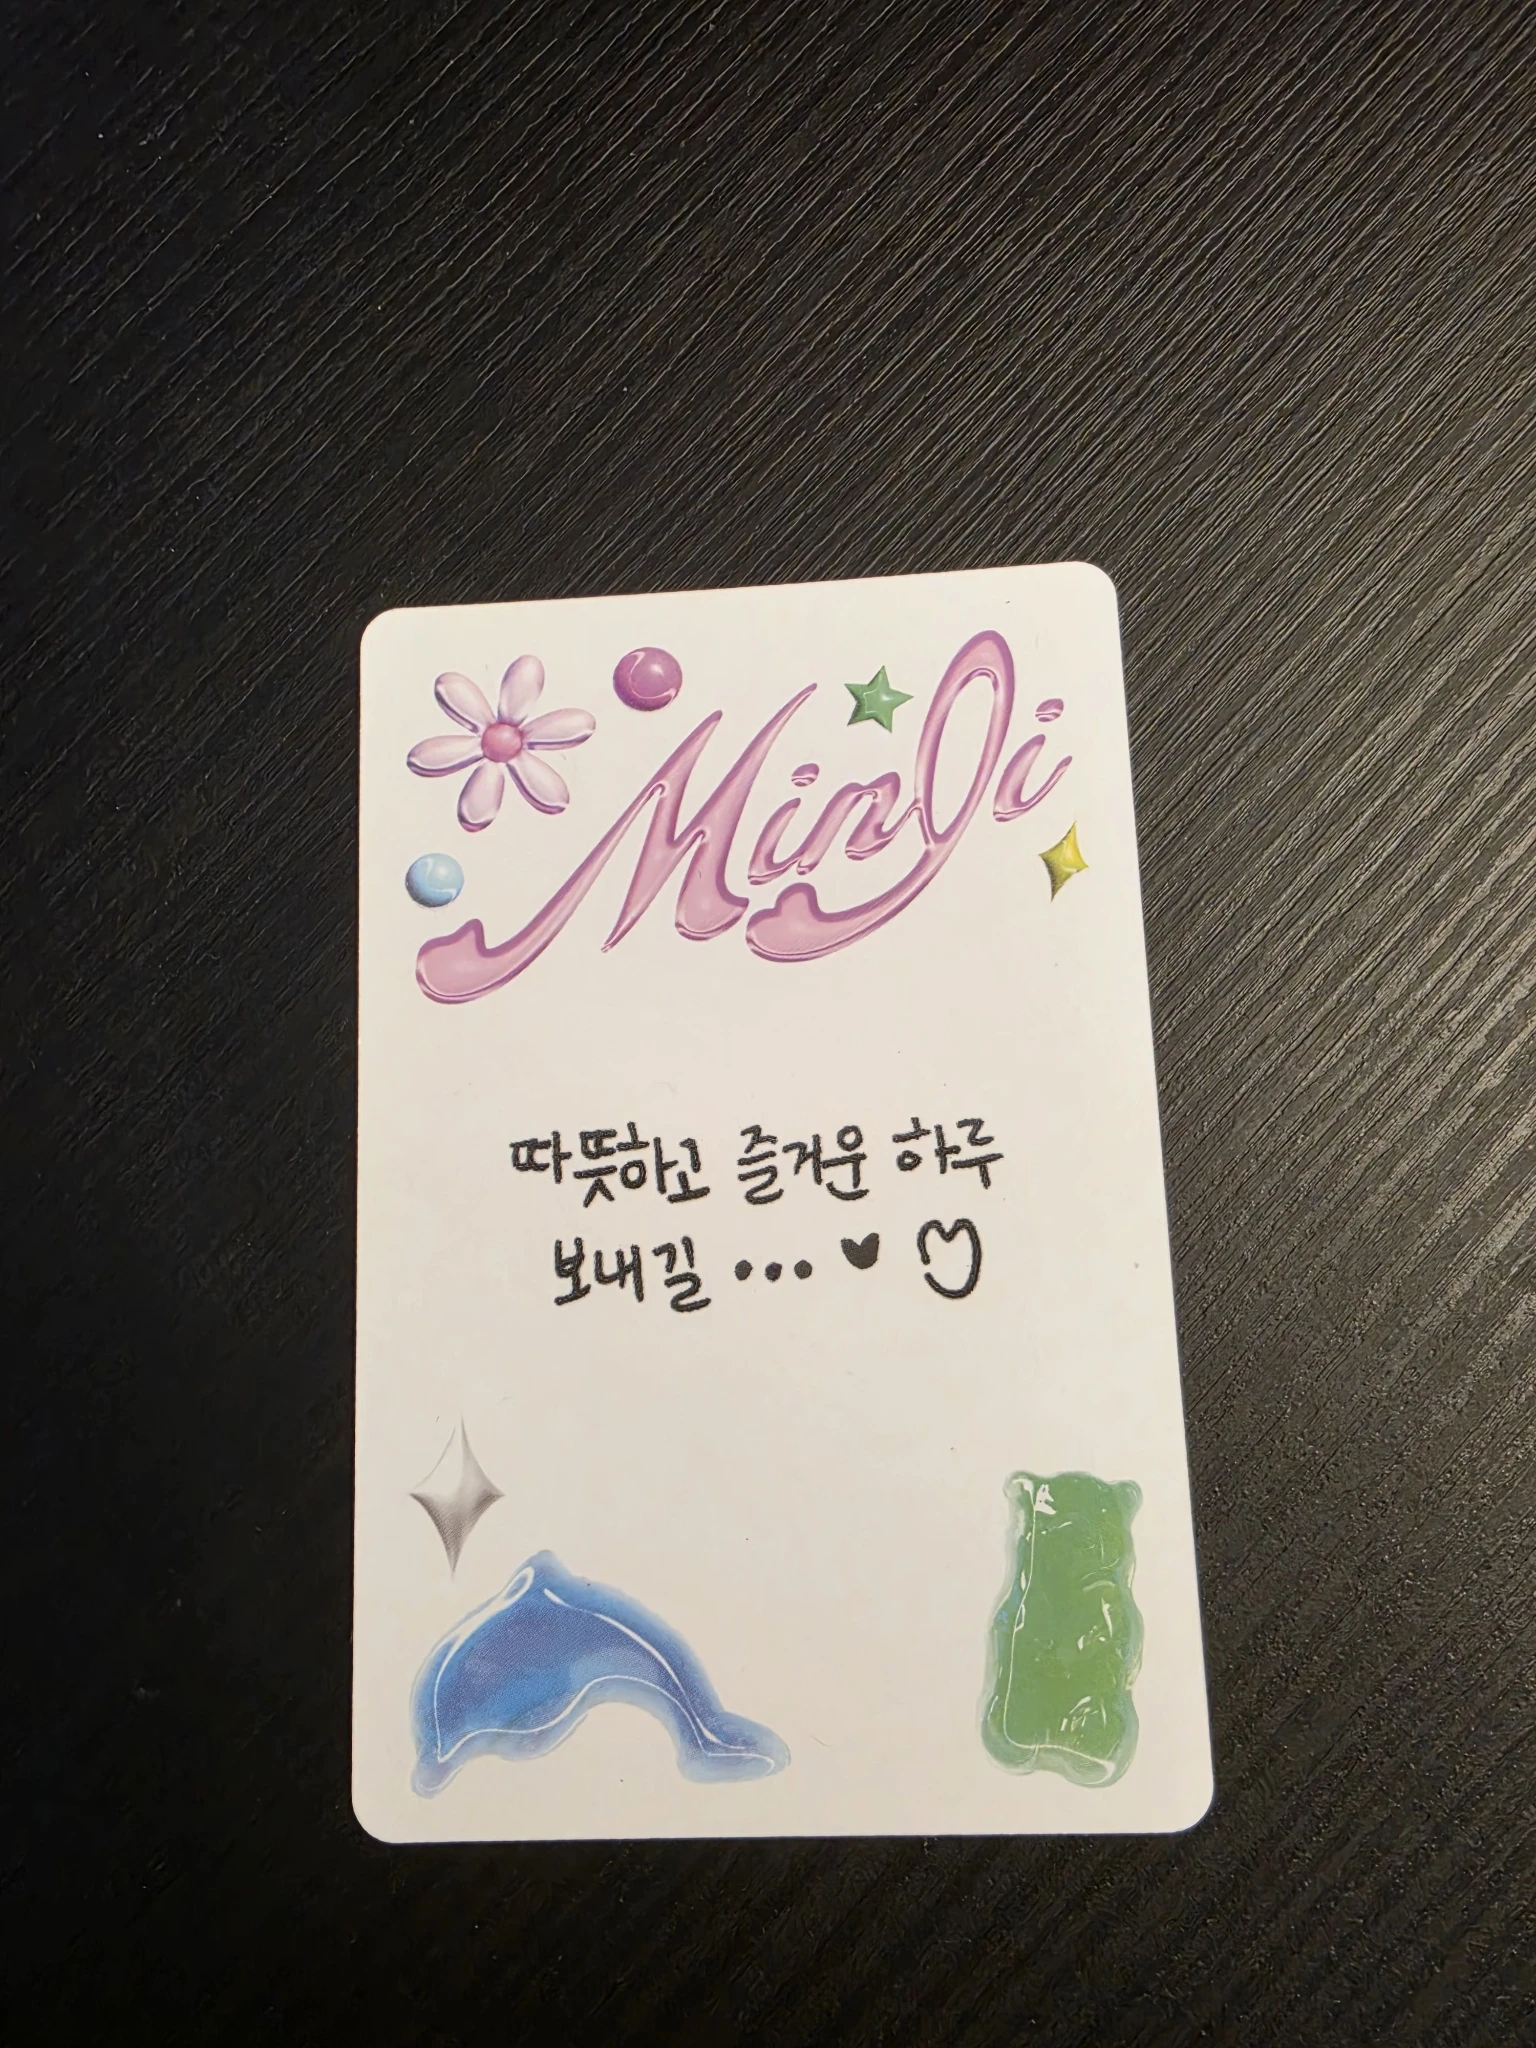 MinJi
따뜻하고 즐거운 하루
보내길 ...